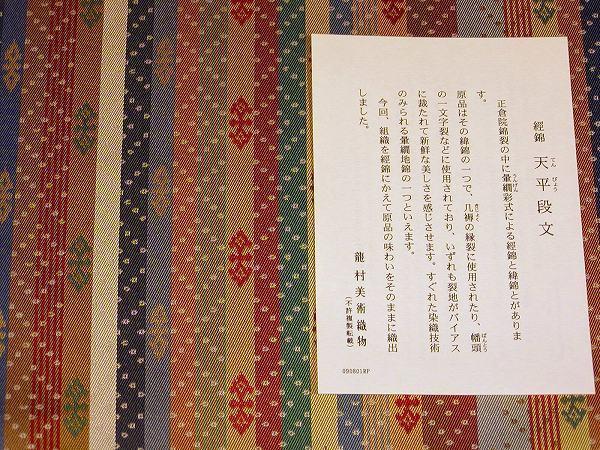 經錦　天平段文
てんぴょう
正倉院錦裂の中に暈繝彩式による經錦と緯錦とがありま
うんげん
す。
原品はその緯錦の一つで、几褥の縁裂に使用されたり、幡頭
きじょく
ばんとう
の一文字裂などに使用されており、いずれも裂地がバイアス
に裁たれて新鮮な美しさを感じさせます。すぐれた染織技術
のみられる暈繝地錦の一つといえます。
今回、組織を經錦にかえて原品の味わいをそのままに織出
しました。
龍村美術織物
(不許複製転載)
090801RP